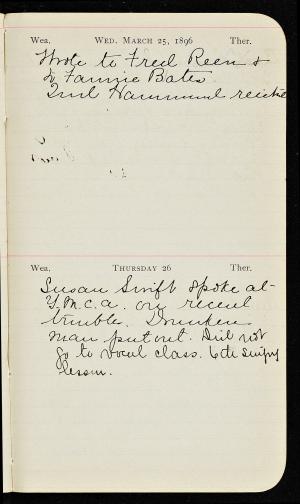 Wea. WED. MARCH 25, 1896 Ther.
Wrote to Fred Reen &
to Fannie Bates
Hammond
Wea. THURSDAY 26 Ther.
Susan Swift spoke at
Y.M.C.A. on recent
trouble. Drunken
man put out. Did not
go to vocal class. 6th
lesson.